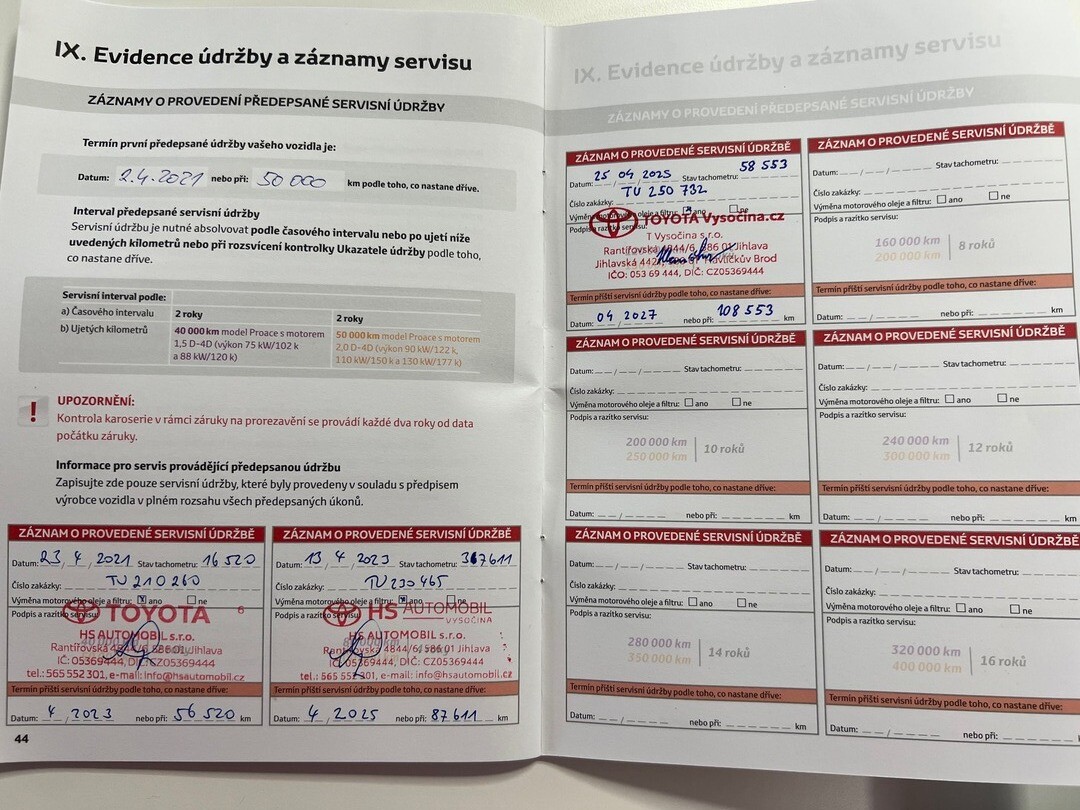 IX. Evidence údržby a záznamy servisu
ZÁZNAMY O PROVEDENÍ PŘEDEPSANÉ SERVISNÍ ÚDRŽBY
Termín první předepsané údržby vašeho vozidla je:
Datum: 2.4.2021 nebo při: 50 000 km podle toho, co nastane dříve.
Interval předepsané servisní údržby
Servisní údržbu je nutné absolvovat podle časového intervalu nebo po ujetí níže
uvedených kilometrů nebo při rozsvícení kontrolky Ukazatele údržby podle toho,
co nastane dříve.
Servisní interval podle:
a) Časového intervalu 2 roky 2 roky
b) Ujetých kilometrů 40 000 km model Proace s motorem 50 000 km model Proace s motorem
1,5 D-4D (výkon 75 kW/102 k 2,0 D-4D (výkon 90 kW/122 k,
a 88 kW/120 k) 110 kW/150 k a 130 kW/177 k)
! UPOZORNĚNÍ:
Kontrola karoserie v rámci záruky na prorezavění se provádí každé dva roky od data
počátku záruky.
Informace pro servis provádějící předepsanou údržbu
Zapisujte zde pouze servisní údržby, které byly provedeny v souladu s předpisem
výrobce vozidla v plném rozsahu všech předepsaných úkonů.
ZÁZNAM O PROVEDENÉ SERVISNÍ ÚDRŽBĚ
Datum: 23 / 4 / 2021 Stav tachometru: 16 520
Číslo zakázky: TU 210 260
Výměna motorového oleje a filtru: ano ne
Podpis a razítko servisu:
TOYOTA 6
HS AUTOMOBIL s.r.o.
Rantířovská 4844/6, 586 01 Jihlava
IČ: 05369444, DIČ: CZ05369444
tel.: 565 552 301, e-mail: info@hsautomobil.cz
Termín příští servisní údržby podle toho, co nastane dříve:
Datum: 4 / 2023 nebo při: 56 520 km
ZÁZNAM O PROVEDENÉ SERVISNÍ ÚDRŽBĚ
Datum: 13 / 4 / 2023 Stav tachometru:
Číslo zakázky: TU 230 465
Výměna motorového oleje a filtru: ano ne
Podpis a razítko servisu:
HS AUTOMOBIL
VYSOČINA
HS AUTOMOBIL s.r.o.
Rantířovská 4844/6, 586 01 Jihlava
IČ: 05369444, DIČ: CZ05369444
tel.: 565 552 301, e-mail: info@hsautomobil.cz
Termín příští servisní údržby podle toho, co nastane dříve:
Datum: 4 / 2025 nebo při: 87 611 km
44
IX. Evidence údržby a záznamy servisu
ZÁZNAMY O PROVEDENÍ PŘEDEPSANÉ SERVISNÍ ÚDRŽBY
ZÁZNAM O PROVEDENÉ SERVISNÍ ÚDRŽBĚ
Datum: 25 / 04 / 2025 Stav tachometru: 58 553
Číslo zakázky: TU 250 732
Výměna motorového oleje a filtru: ano ne
Podpis a razítko servisu:
TOYOTA Vysočina.cz
T Vysočina s.r.o.
Rantířovská 4844/6, 586 01 Jihlava
Jihlavská Havlíčkův Brod
IČO: 053 69 444, DIČ: CZ05369444
Termín příští servisní údržby podle toho, co nastane dříve:
Datum: 04 / 2027 nebo při: 108 553 km
ZÁZNAM O PROVEDENÉ SERVISNÍ ÚDRŽBĚ
Datum: Stav tachometru:
Číslo zakázky:
Výměna motorového oleje a filtru: ano ne
Podpis a razítko servisu:
160 000 km
200 000 km
8 roků
Termín příští servisní údržby podle toho, co nastane dříve:
Datum: nebo při: km
ZÁZNAM O PROVEDENÉ SERVISNÍ ÚDRŽBĚ
Datum: Stav tachometru:
Číslo zakázky:
Výměna motorového oleje a filtru: ano ne
Podpis a razítko servisu:
200 000 km
250 000 km
10 roků
Termín příští servisní údržby podle toho, co nastane dříve:
Datum: nebo při: km
ZÁZNAM O PROVEDENÉ SERVISNÍ ÚDRŽBĚ
Datum: Stav tachometru:
Číslo zakázky:
Výměna motorového oleje a filtru: ano ne
Podpis a razítko servisu:
240 000 km
300 000 km
12 roků
Termín příští servisní údržby podle toho, co nastane dříve:
Datum: nebo při: km
ZÁZNAM O PROVEDENÉ SERVISNÍ ÚDRŽBĚ
Datum: Stav tachometru:
Číslo zakázky:
Výměna motorového oleje a filtru: ano ne
Podpis a razítko servisu:
280 000 km
350 000 km
14 roků
Termín příští servisní údržby podle toho, co nastane dříve:
Datum: nebo při: km
ZÁZNAM O PROVEDENÉ SERVISNÍ ÚDRŽBĚ
Datum: Stav tachometru:
Číslo zakázky:
Výměna motorového oleje a filtru: ano ne
Podpis a razítko servisu:
320 000 km
400 000 km
16 roků
Termín příští servisní údržby podle toho, co nastane dříve:
Datum: nebo při: km